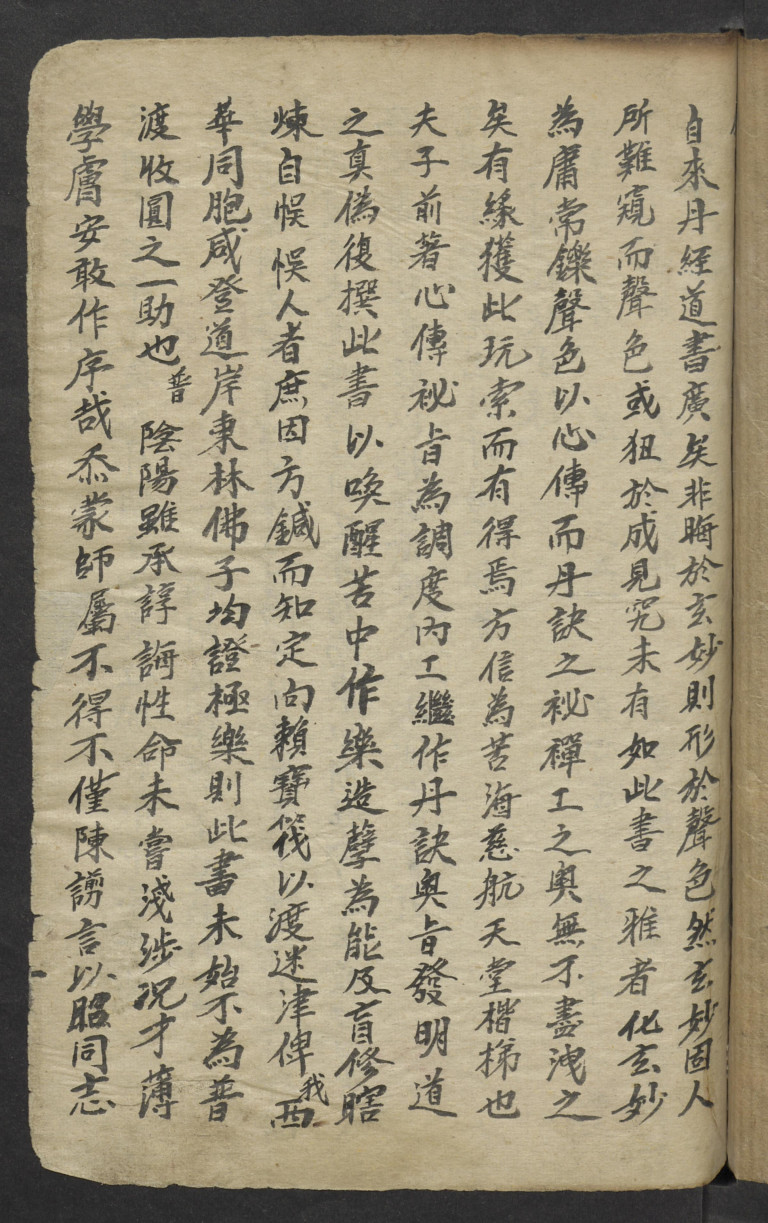 自來丹經道書廣矣非晦於玄妙則形於聲色然玄妙固人
所難窺而聲色或狃於成見究未有如此書之雅者化玄妙
為庸常鑠聲色以心傳而丹訣之祕禪工之奧無不盡洩之
矣有緣獲此玩索而有得焉方信為苦海慈航天堂楷梯也
夫子前著心傳祕旨為調度內工繼作丹訣奧旨發明道
之真偽復撰此書以喚醒苦中作樂造孽為能及盲修瞎
煉自悞悞人者庶因方鍼而知定向賴寶筏以渡迷津俾我西
華同胞咸登道岸東林佛子均證極樂則此書未始不為普
渡收圓之一助也普陰陽雖承諄誨性命未嘗淺涉況才薄
學膚安敢作序哉忝蒙師屬不得不僅陳謭言以昭同志